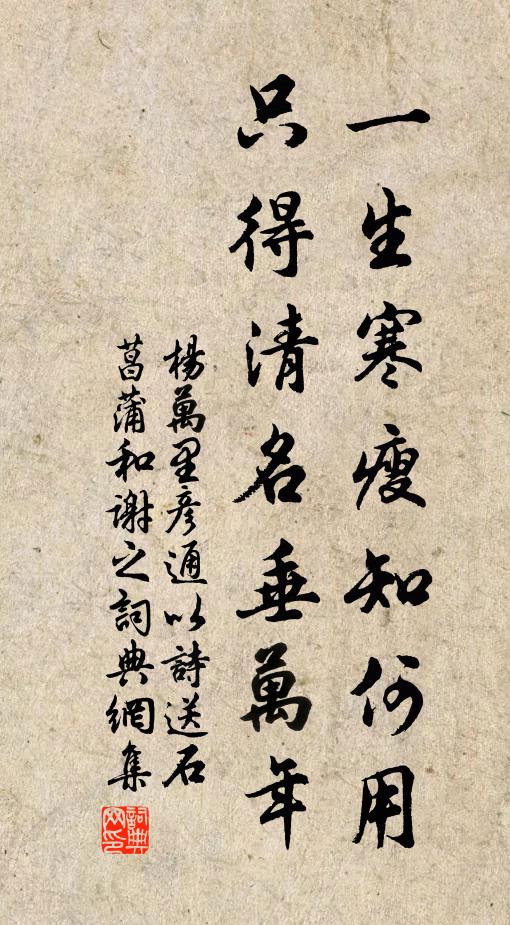 一生寒瘦知何用
只得清名垂萬年
楊萬里彥通以詩送石
菖蒲和謝之詞典網集
詞典网印